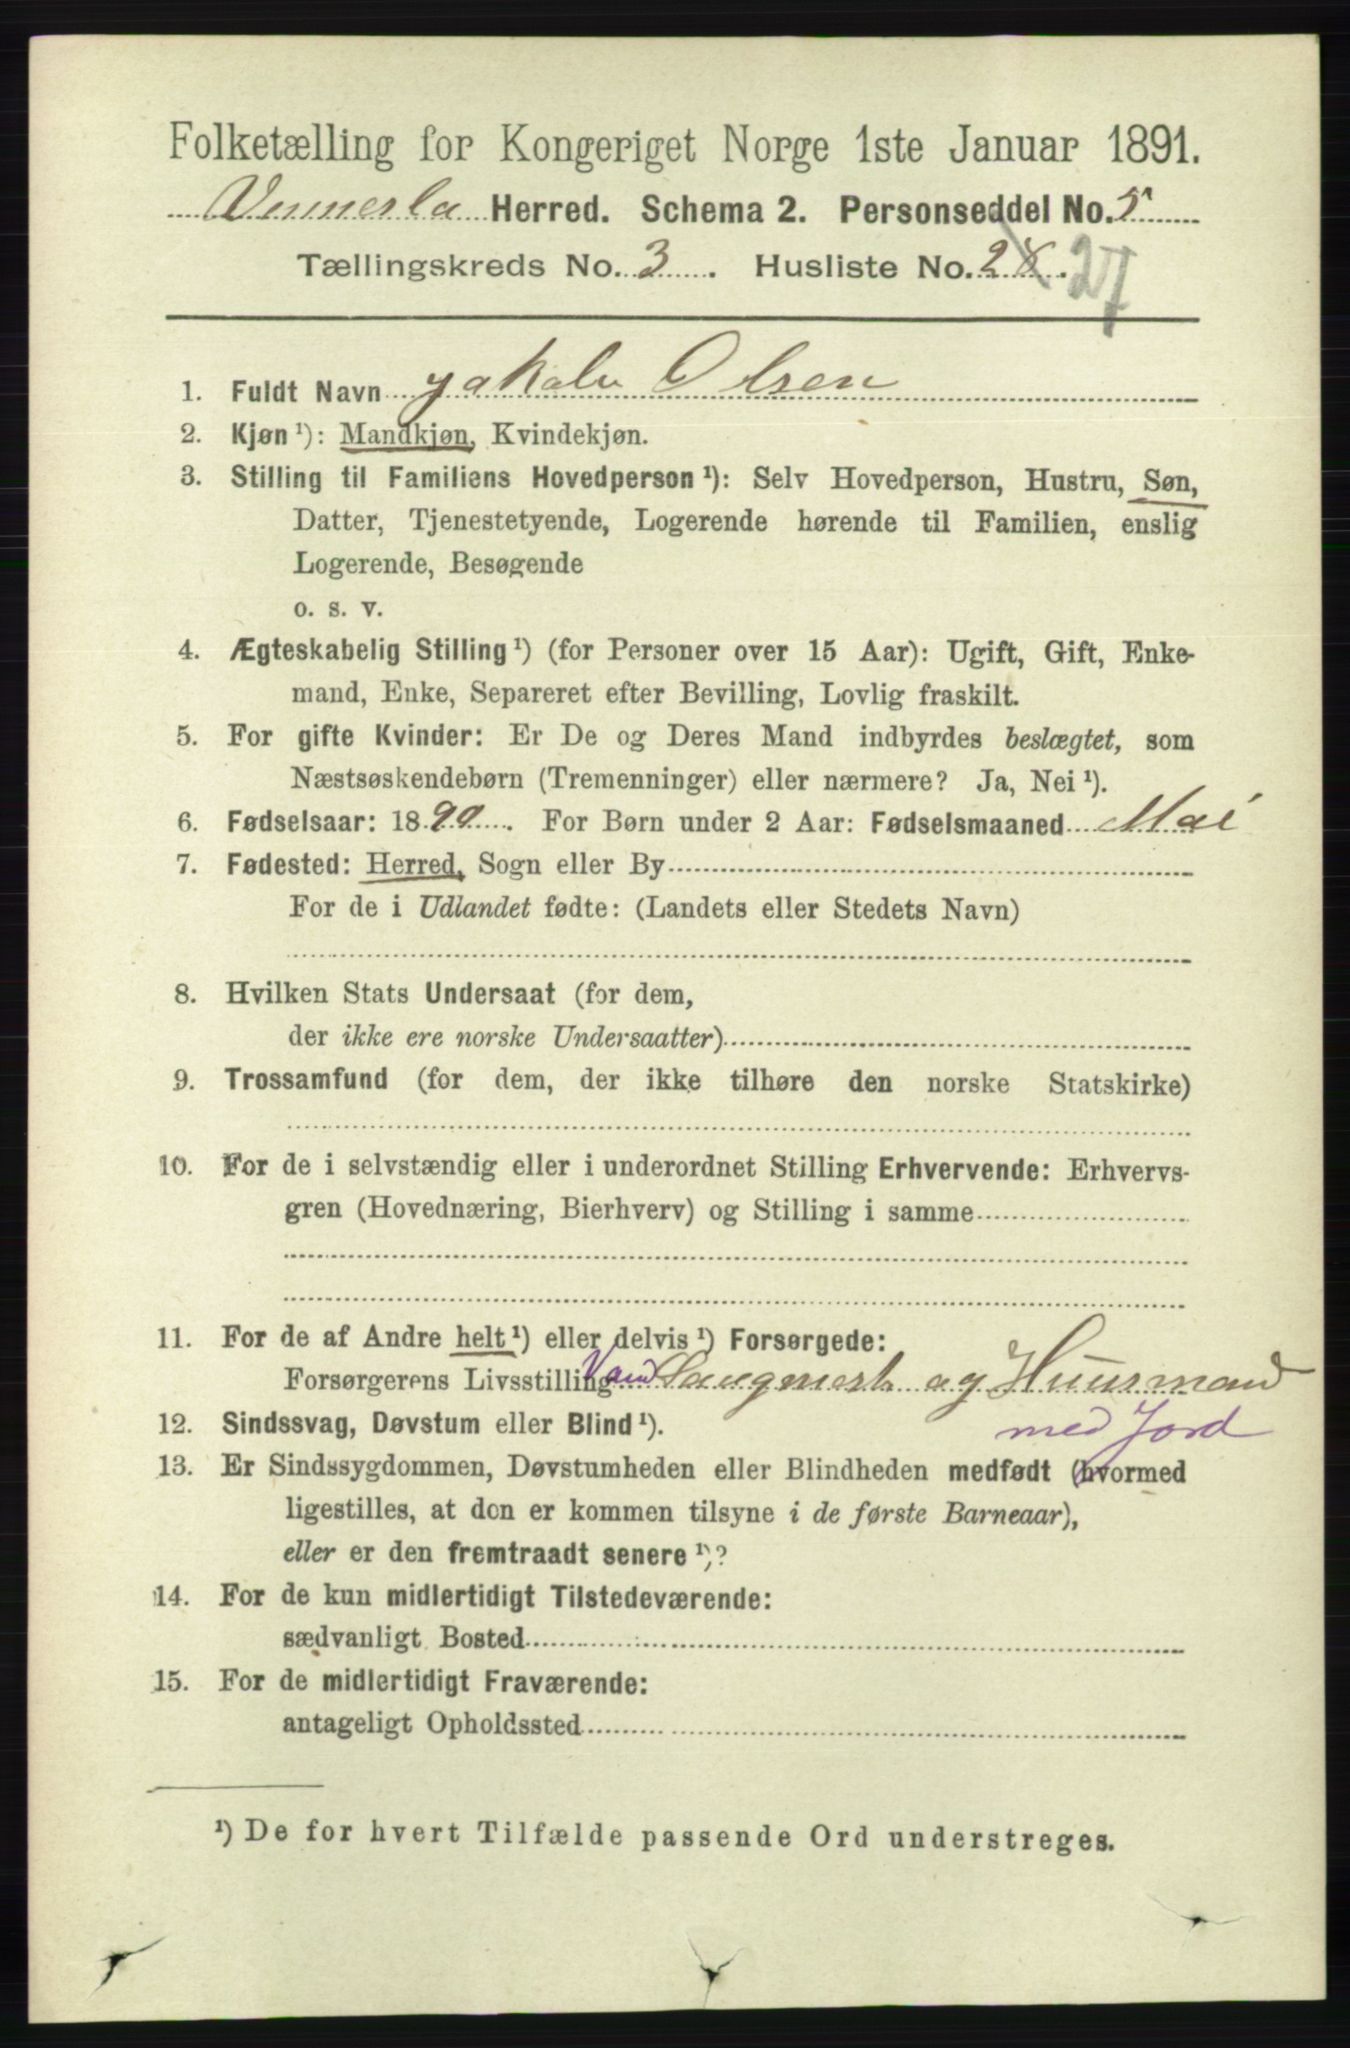 Folketælling for Kongeriget Norge 1ste Januar 1891.
Vennerla Herred. Schema 2. Personseddel No. 5
Tællingskreds No. 3. Husliste No. 28. 27
1. Fuldt Navn Jakob Olsen
2. Kjøn ¹): Mandkjøn, Kvindekjøn.
3. Stilling til Familiens Hovedperson ¹): Selv Hovedperson, Hustru, Søn,
Datter, Tjenestetyende, Logerende hørende til Familien, enslig
Logerende, Besøgende
o. s. v.
4. Ægteskabelig Stilling ¹) (for Personer over 15 Aar): Ugift, Gift, Enke-
mand, Enke, Separeret efter Bevilling, Lovlig fraskilt.
5. For gifte Kvinder: Er De og Deres Mand indbyrdes beslægtet, som
Næstsøskendebørn (Tremenninger) eller nærmere? Ja, Nei ¹).
6. Fødselsaar: 1890. For Børn under 2 Aar: Fødselsmaaned Mai
7. Fødested: Herred, Sogn eller By
For de i Udlandet fødte: (Landets eller Stedets Navn)
8. Hvilken Stats Undersaat (for dem,
der ikke ere norske Undersaatter)
9. Trossamfund (for dem, der ikke tilhøre den norske Statskirke)
10. For de i selvstændig eller i underordnet Stilling Erhvervende: Erhvervs-
gren (Hovednæring, Bierhverv) og Stilling i samme
11. For de af Andre helt ¹) eller delvis ¹) Forsørgede:
Forsørgerens Livsstilling Vand Saugmest. og Huusmand
med Jord
12. Sindssvag, Døvstum eller Blind ¹).
13. Er Sindssygdommen, Døvstumheden eller Blindheden medfødt (hvormed
ligestilles, at den er kommen tilsyne i de første Barneaar),
eller er den fremtraadt senere ¹)?
14. For de kun midlertidigt Tilstedeværende:
sædvanligt Bosted
15. For de midlertidigt Fraværende:
antageligt Opholdssted
¹) De for hvert Tilfælde passende Ord understreges.